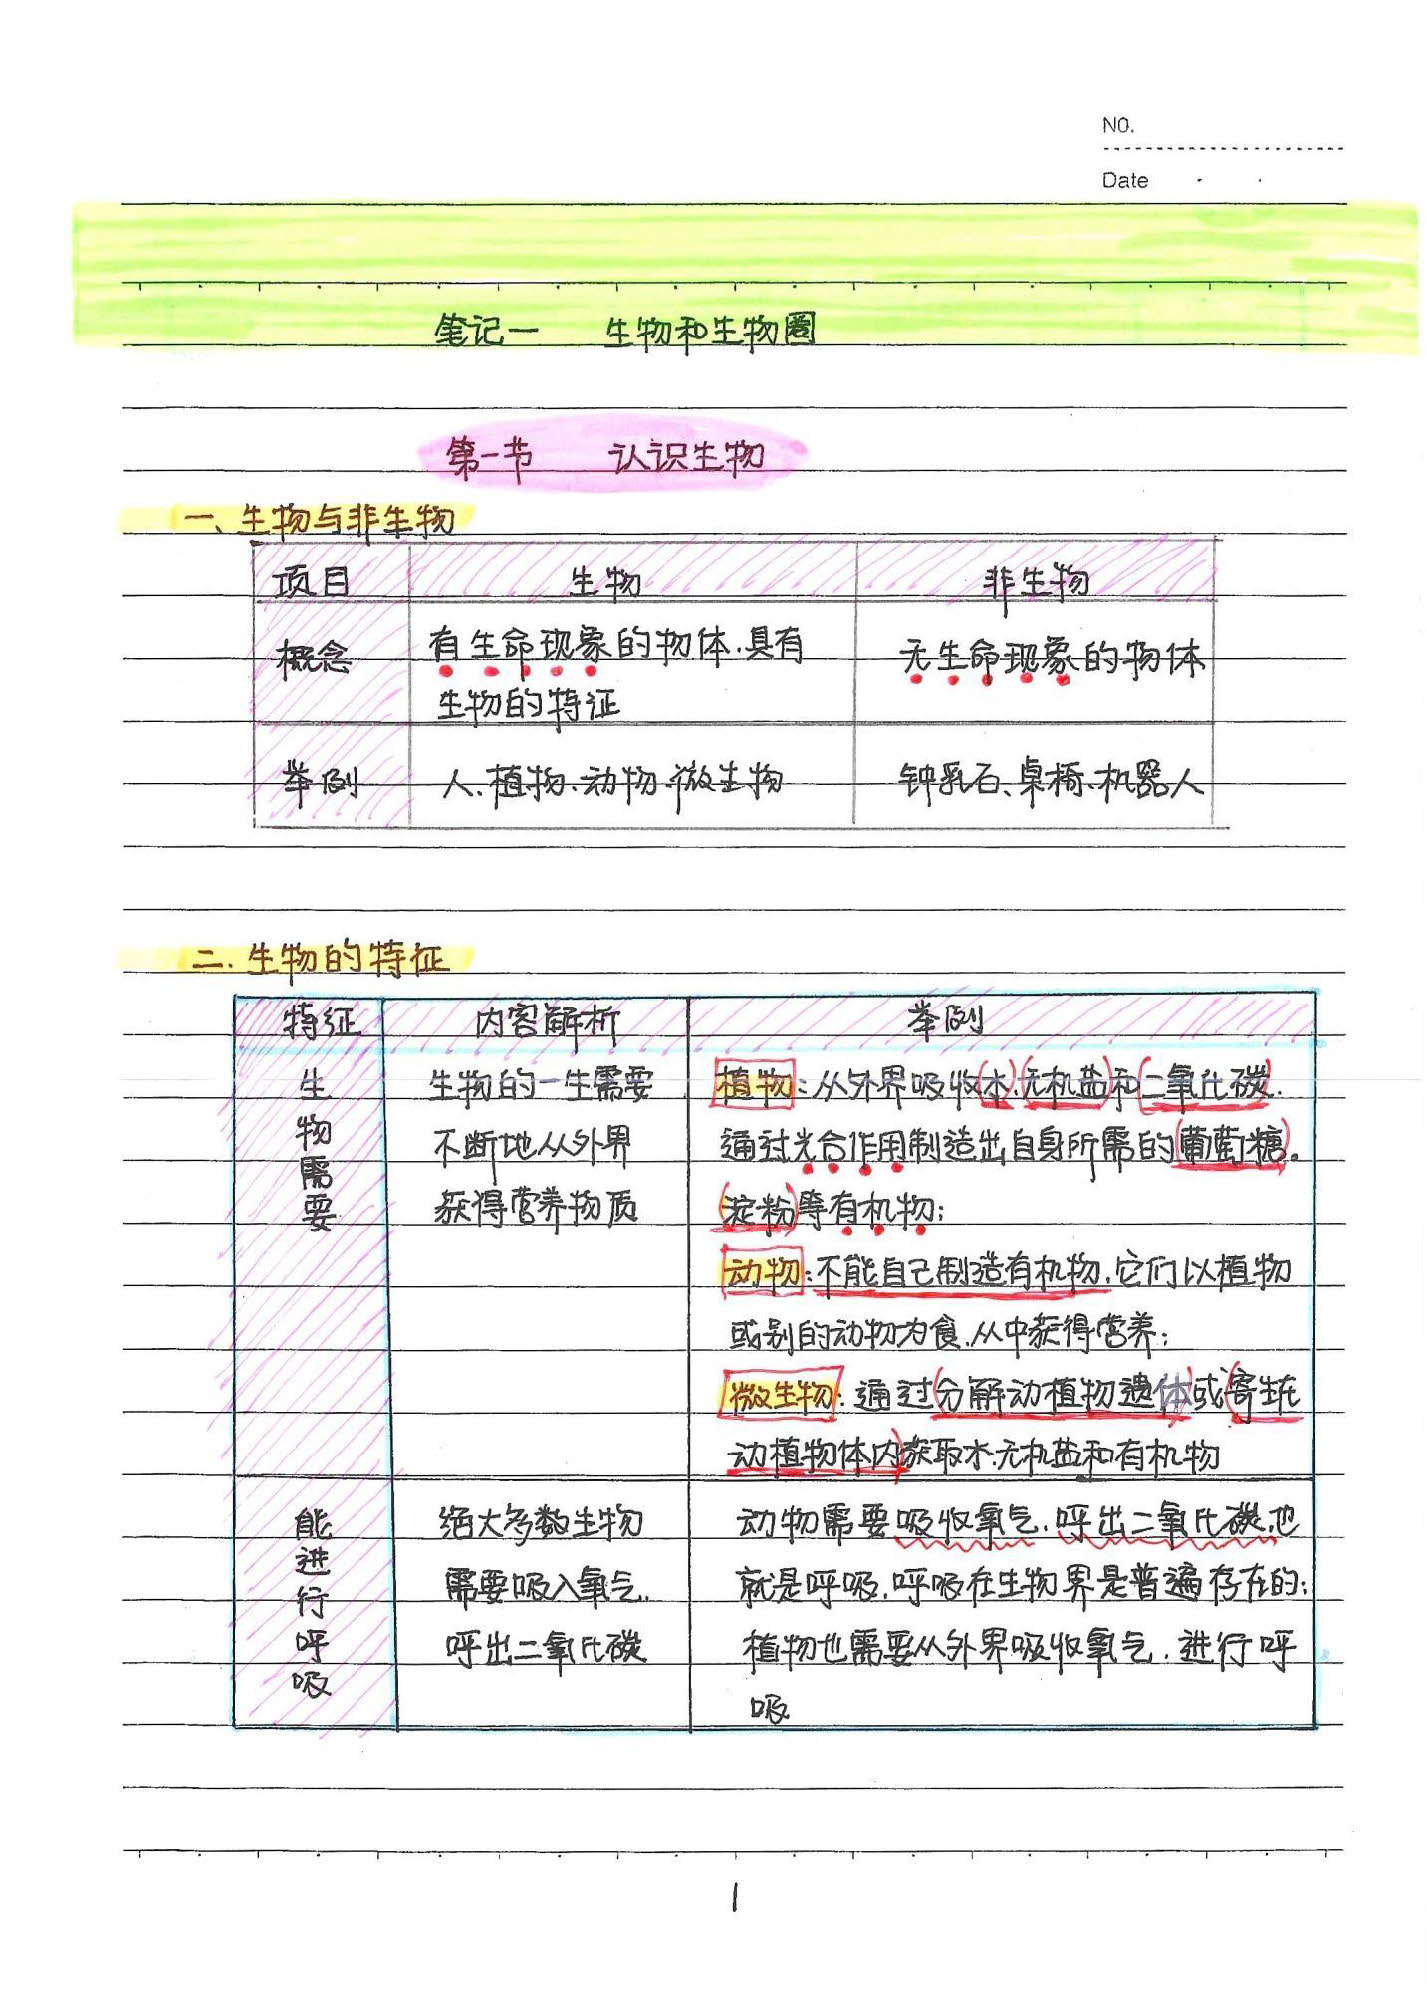 NO.
Date
笔记一 生物和生物圈
第一节 认识生物
一、生物与非生物
项目 生物 非生物
概念 有生命现象的物体、具有
生物的特征
无生命现象的物体
举例 人、植物、动物、微生物 钟乳石、桌椅、机器人
二、生物的特征
特征 内容解析 举例
生
物
需
要
生物的一生需要
不断地从外界
获得营养物质
植物:从外界吸收(水)、(无机盐)和(二氧化碳),
通过光合作用制造出自身所需的(葡萄糖)。
(淀粉)等有机物;
动物:不能自己制造有机物,它们以植物
或别的动物为食,从中获得营养;
微生物:通过(分解动植物遗体)或(寄生在
动植物体内)获取水、无机盐和有机物
能
进
行
呼
吸
绝大多数生物
需要吸入氧气,
呼出二氧化碳
动物需要吸收氧气,呼出二氧化碳,也
就是呼吸,呼吸在生物界是普遍存在的;
植物也需要从外界吸收氧气,进行呼
吸
1